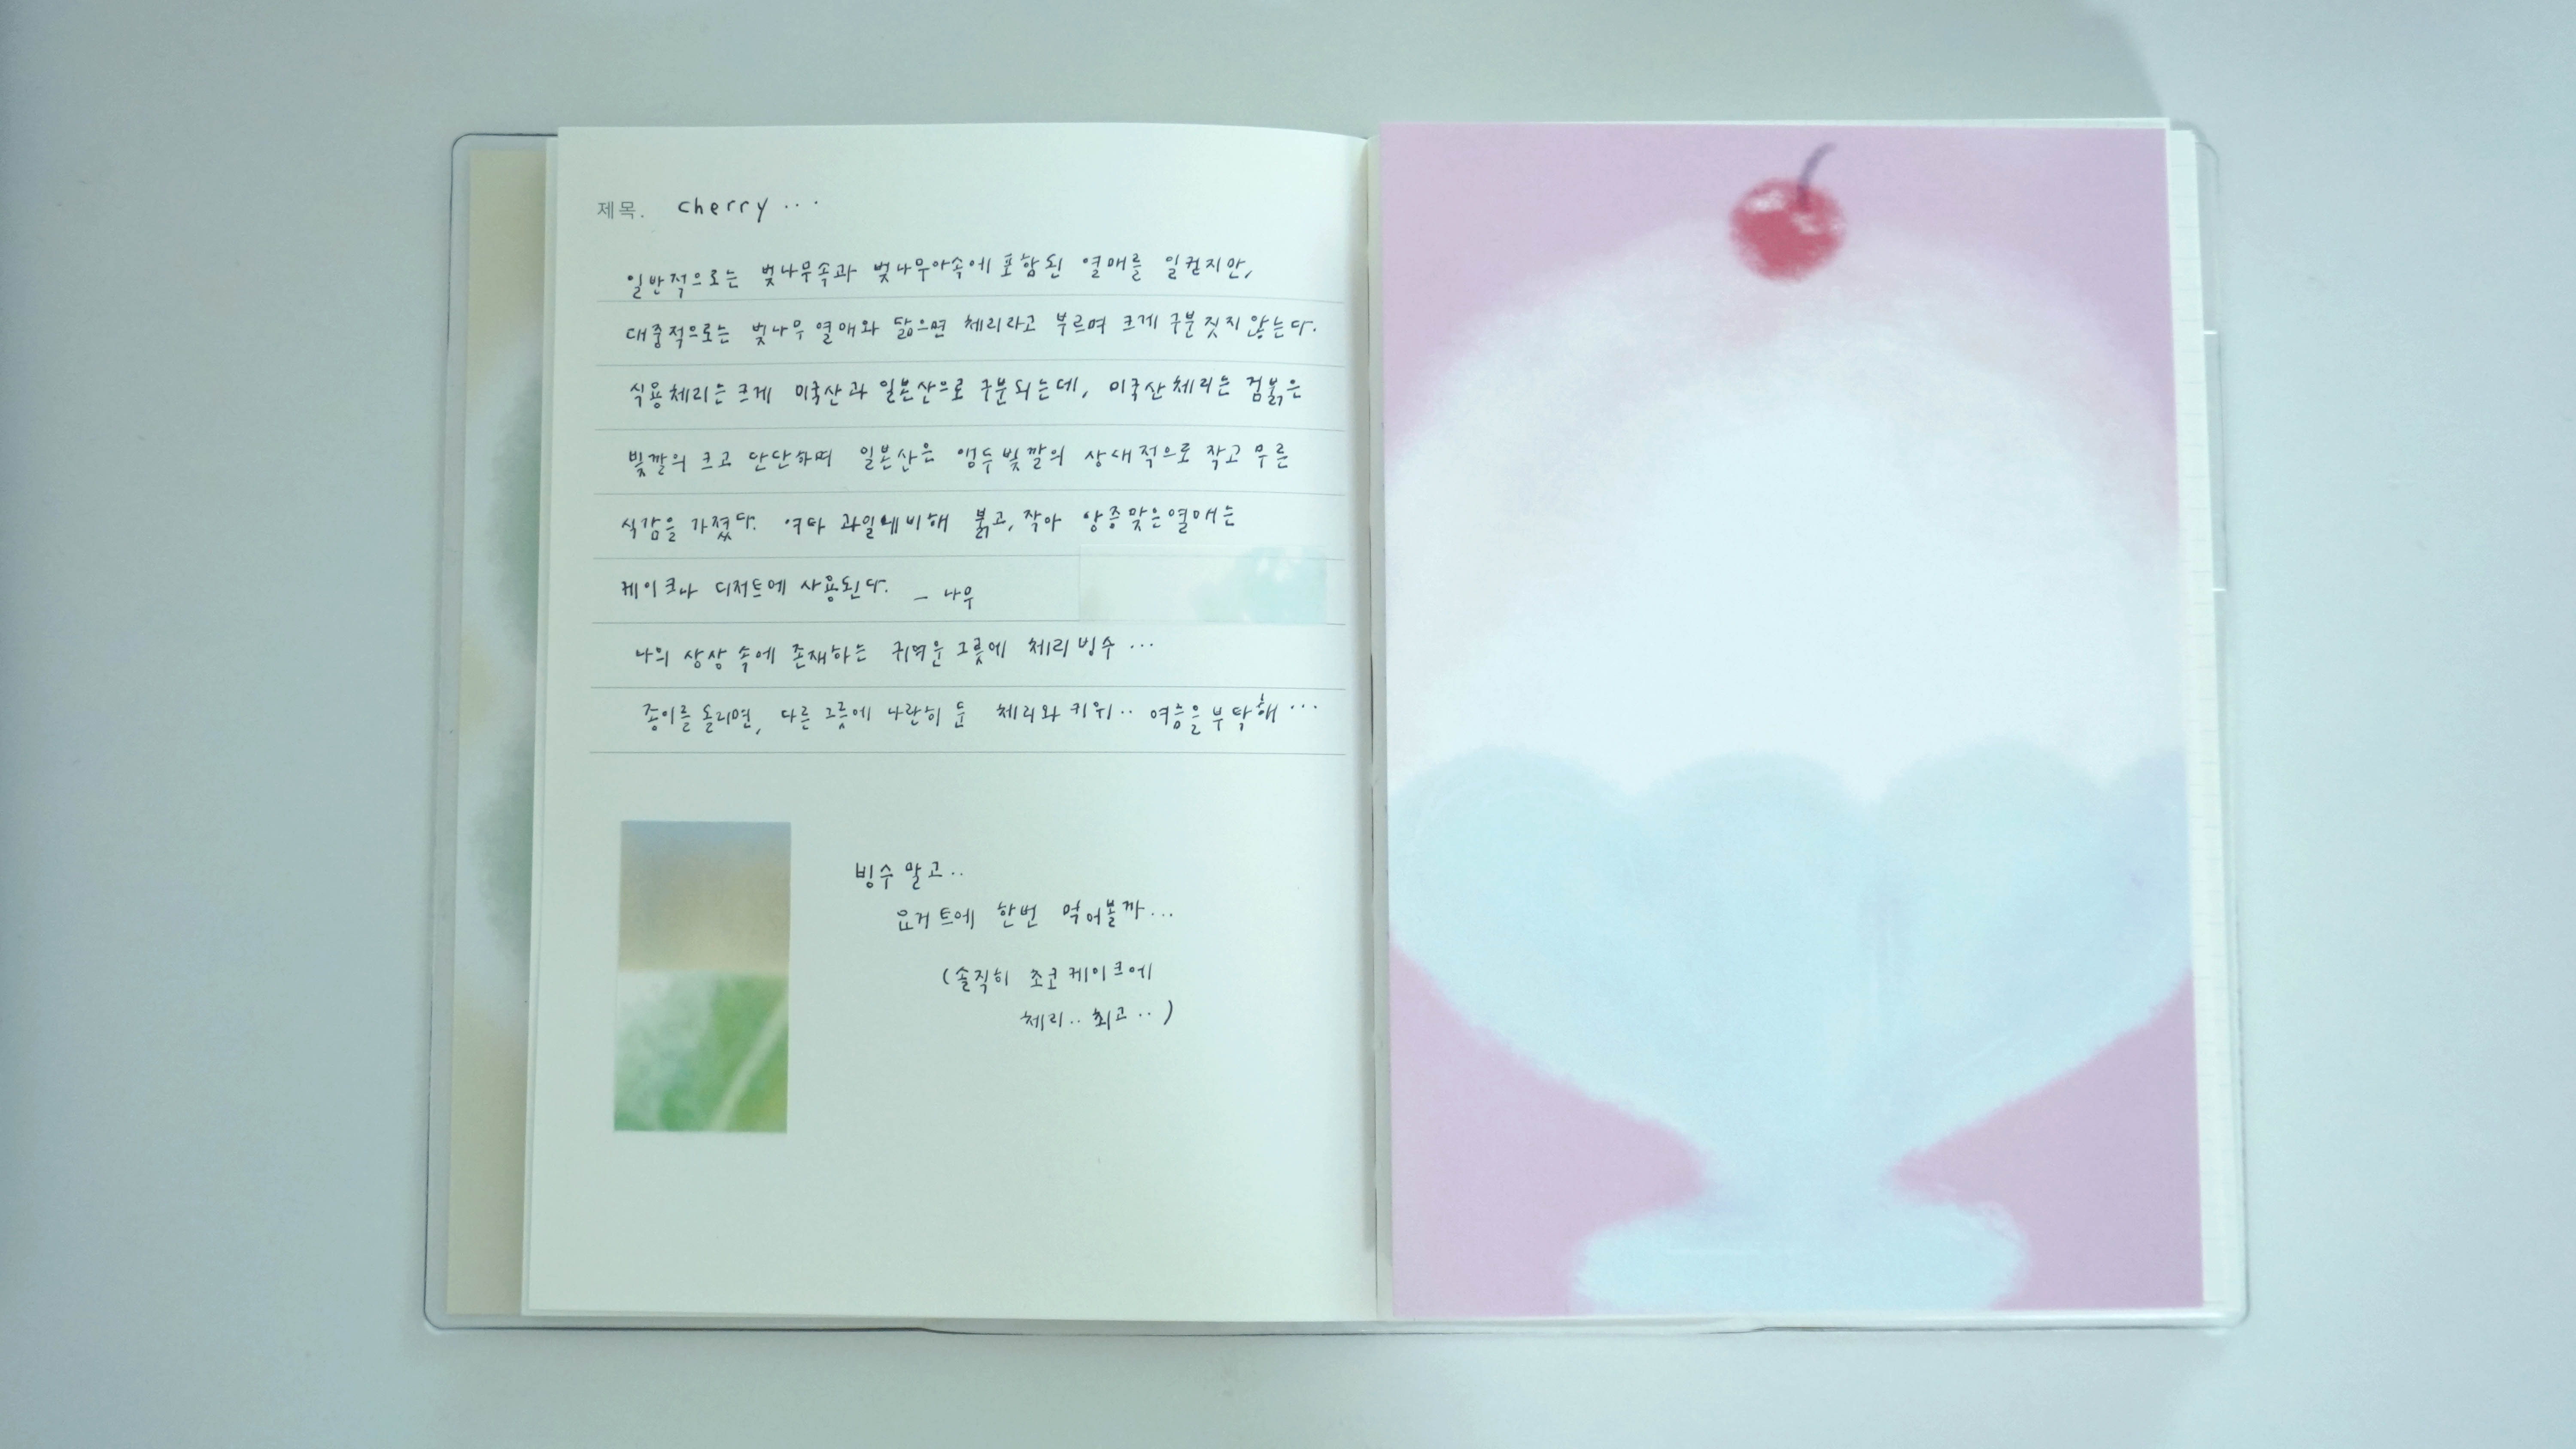 제목. cherry ...
일반적으로는 벚나무속과 벚나무아속에 포함된 열매를 일컫지만,
대중적으로는 벚나무 열매와 닮으면 체리라고 부르며 크게 구분 짓지 않는다.
식용 체리는 크게 미국산과 일본산으로 구분되는데, 미국산 체리는 검붉은
빛깔의 크고 단단하며 일본산은 앵두빛깔의 상대적으로 작고 무른
식감을 가졌다. 여타 과일에 비해 붉고, 작아 앙증맞은 열매는
케이크나 디저트에 사용된다. - 나무
나의 상상 속에 존재하는 귀여운 그릇에 체리빙수 ...
종이를 올리면, 다른 그릇에 나란히 둔 체리와 키위.. 여름을 부탁해 ...
빙수 말고..
요거트에 한번 먹어볼까...
(솔직히 초코케이크에
체리.. 최고..)